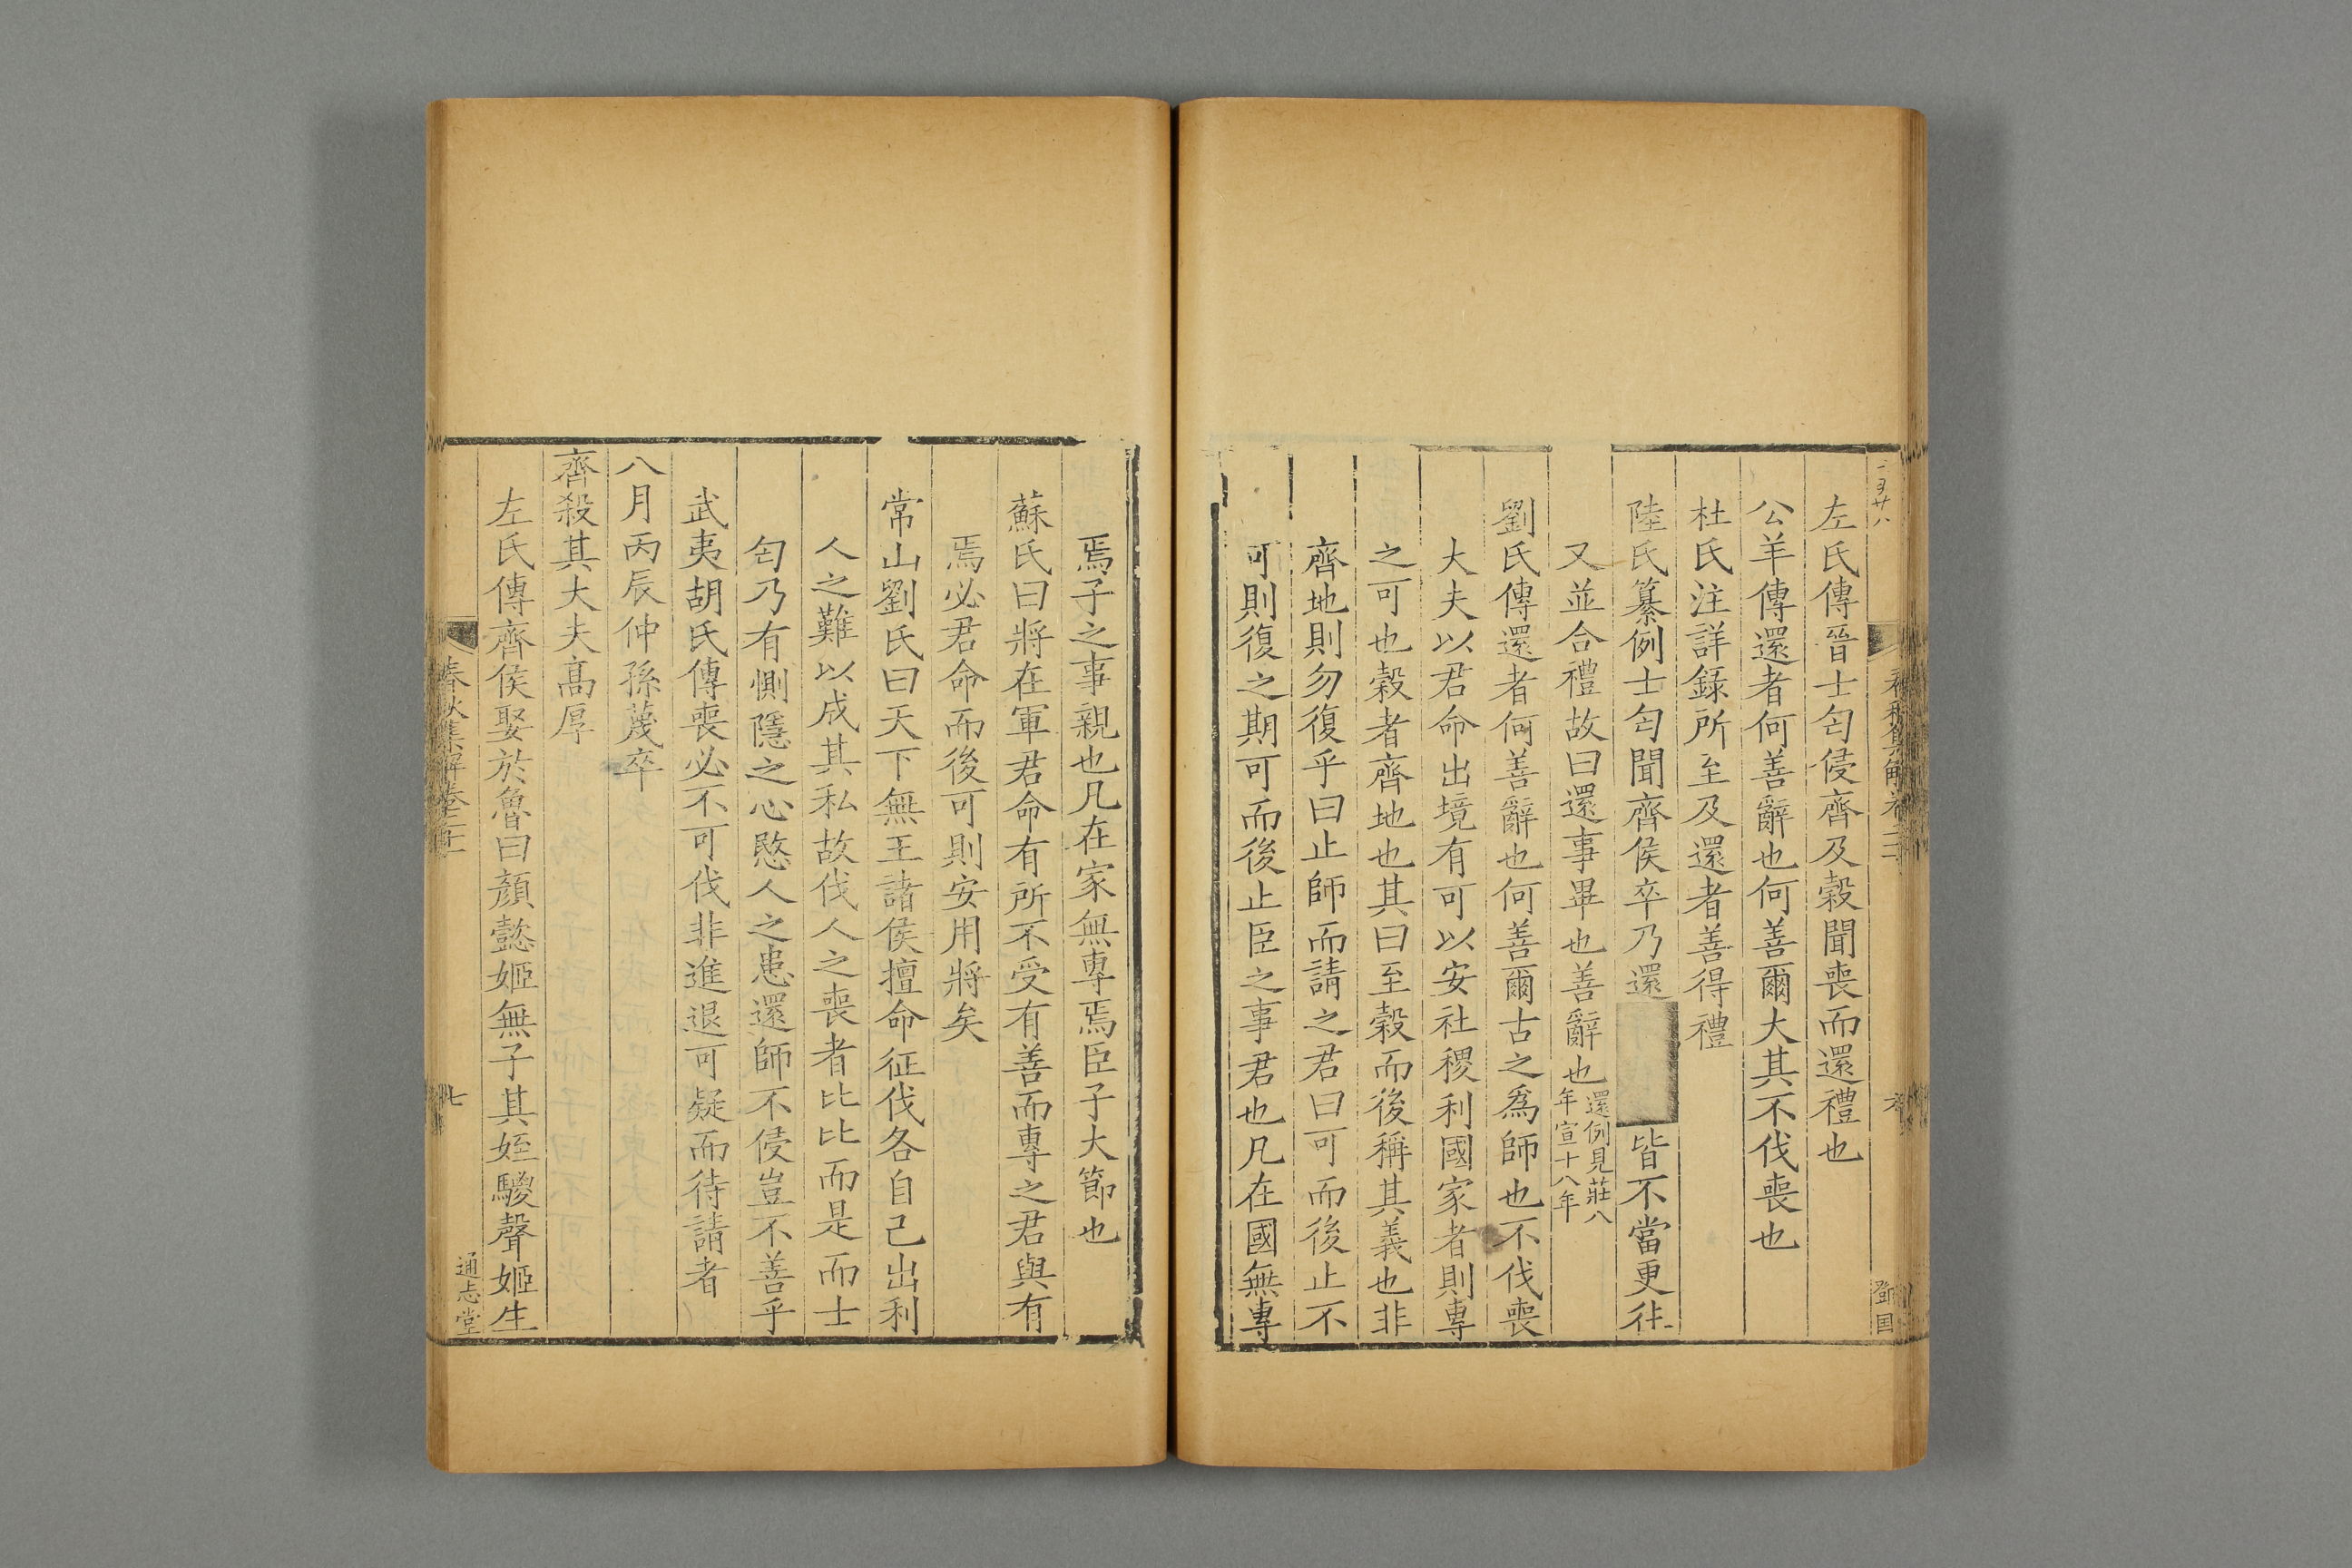 左氏傳晉士匄侵齊及穀聞喪而還禮也
公羊傳還者何善辭也何善爾大其不伐喪也
杜氏注詳録所至及還者善得禮
陸氏纂例士匄聞齊侯卒乃還皆不當更往
又並合禮故曰還事畢也善辭也還例見莊八年宣十八年
劉氏傳還者何善辭也何善爾古之爲師也不伐喪
大夫以君命出境有可以安社稷利國家者則專
之可也穀者齊地也其曰至穀而後稱其義也非
齊地則勿復乎曰止師而請之君曰可而後止不
可則復之期可而後止臣之事君也凡在國無專
焉子之事親也凡在家無專焉臣子大節也
蘇氏曰將在軍君命有所不受有善而專之君與有
焉必君命而後可則安用將矣
常山劉氏曰天下無王諸侯擅命征伐各自己出利
人之難以成其私故伐人之喪者比比而是而士
匄乃有惻隱之心愍人之患還師不侵豈不善乎
武夷胡氏傳喪必不可伐非進退可疑而待請者
八月丙辰仲孫蔑卒
齊殺其大夫高厚
左氏傳齊侯娶於魯曰顏懿姬無子其姪鬷聲姬生
春秋集解卷二十
七
通志堂